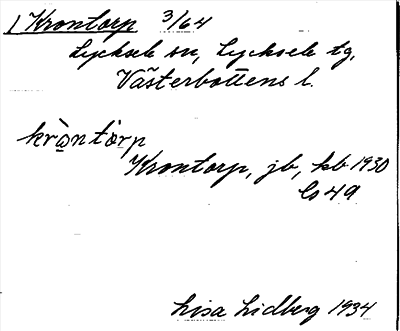 1 Krontorp 3/64
Lycksele sn, Lycksele tg,
Västerbottens l.
krò̤ntȧ̀rp
Krontorp, jb, kb 1930
Co 49
Lisa Lidberg 1934